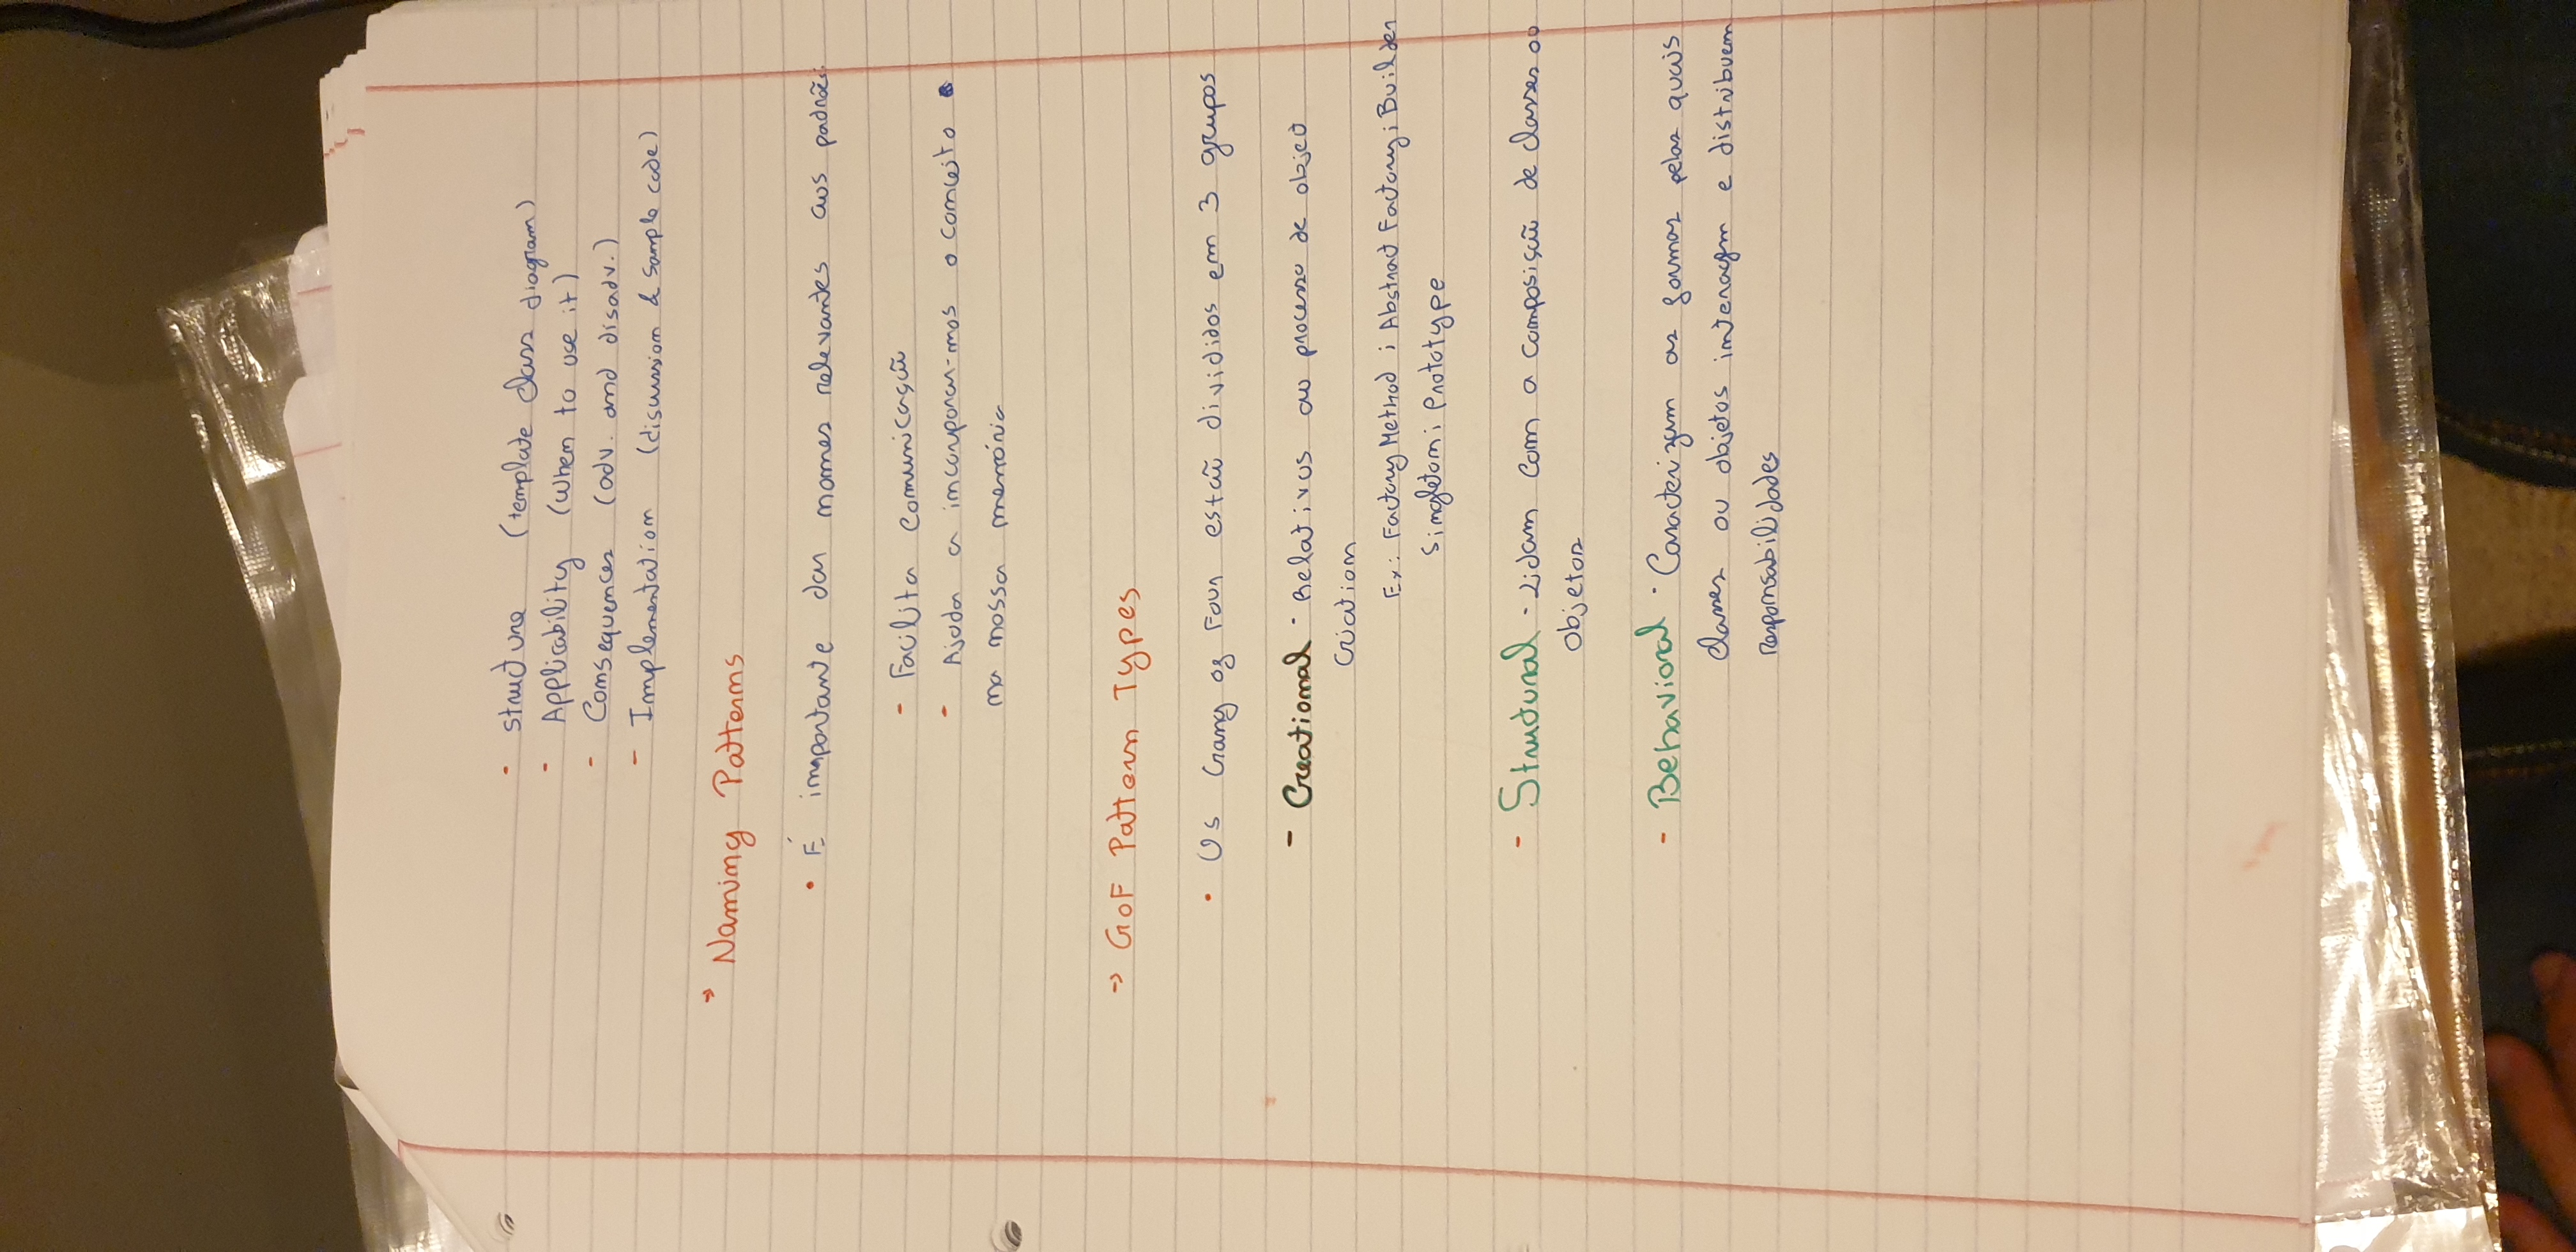 - structure (template class diagram)
- Applicability (when to use it)
- Consequences (adv. and disadv.)
- Implementation (discussion & sample code)
→ Naming Patterns
• É importante dar nomes relevantes aos padrões
- Facilita comunicação
- Ajuda a incorporar-mos o conceito
na nossa memória
→ GoF Pattern Types
• Os Gang of Four estão divididos em 3 grupos
- Creational · Relativos ao processo de object
criation
Ex: Factory Method ; Abstract Factory ; Builder
Singleton ; Prototype
- Structural · Lidam com a composição de classes ou
objetos
- Behavioral · Caracterizam as formas pelas quais
classes ou objetos interagem e distribuem
responsabilidades